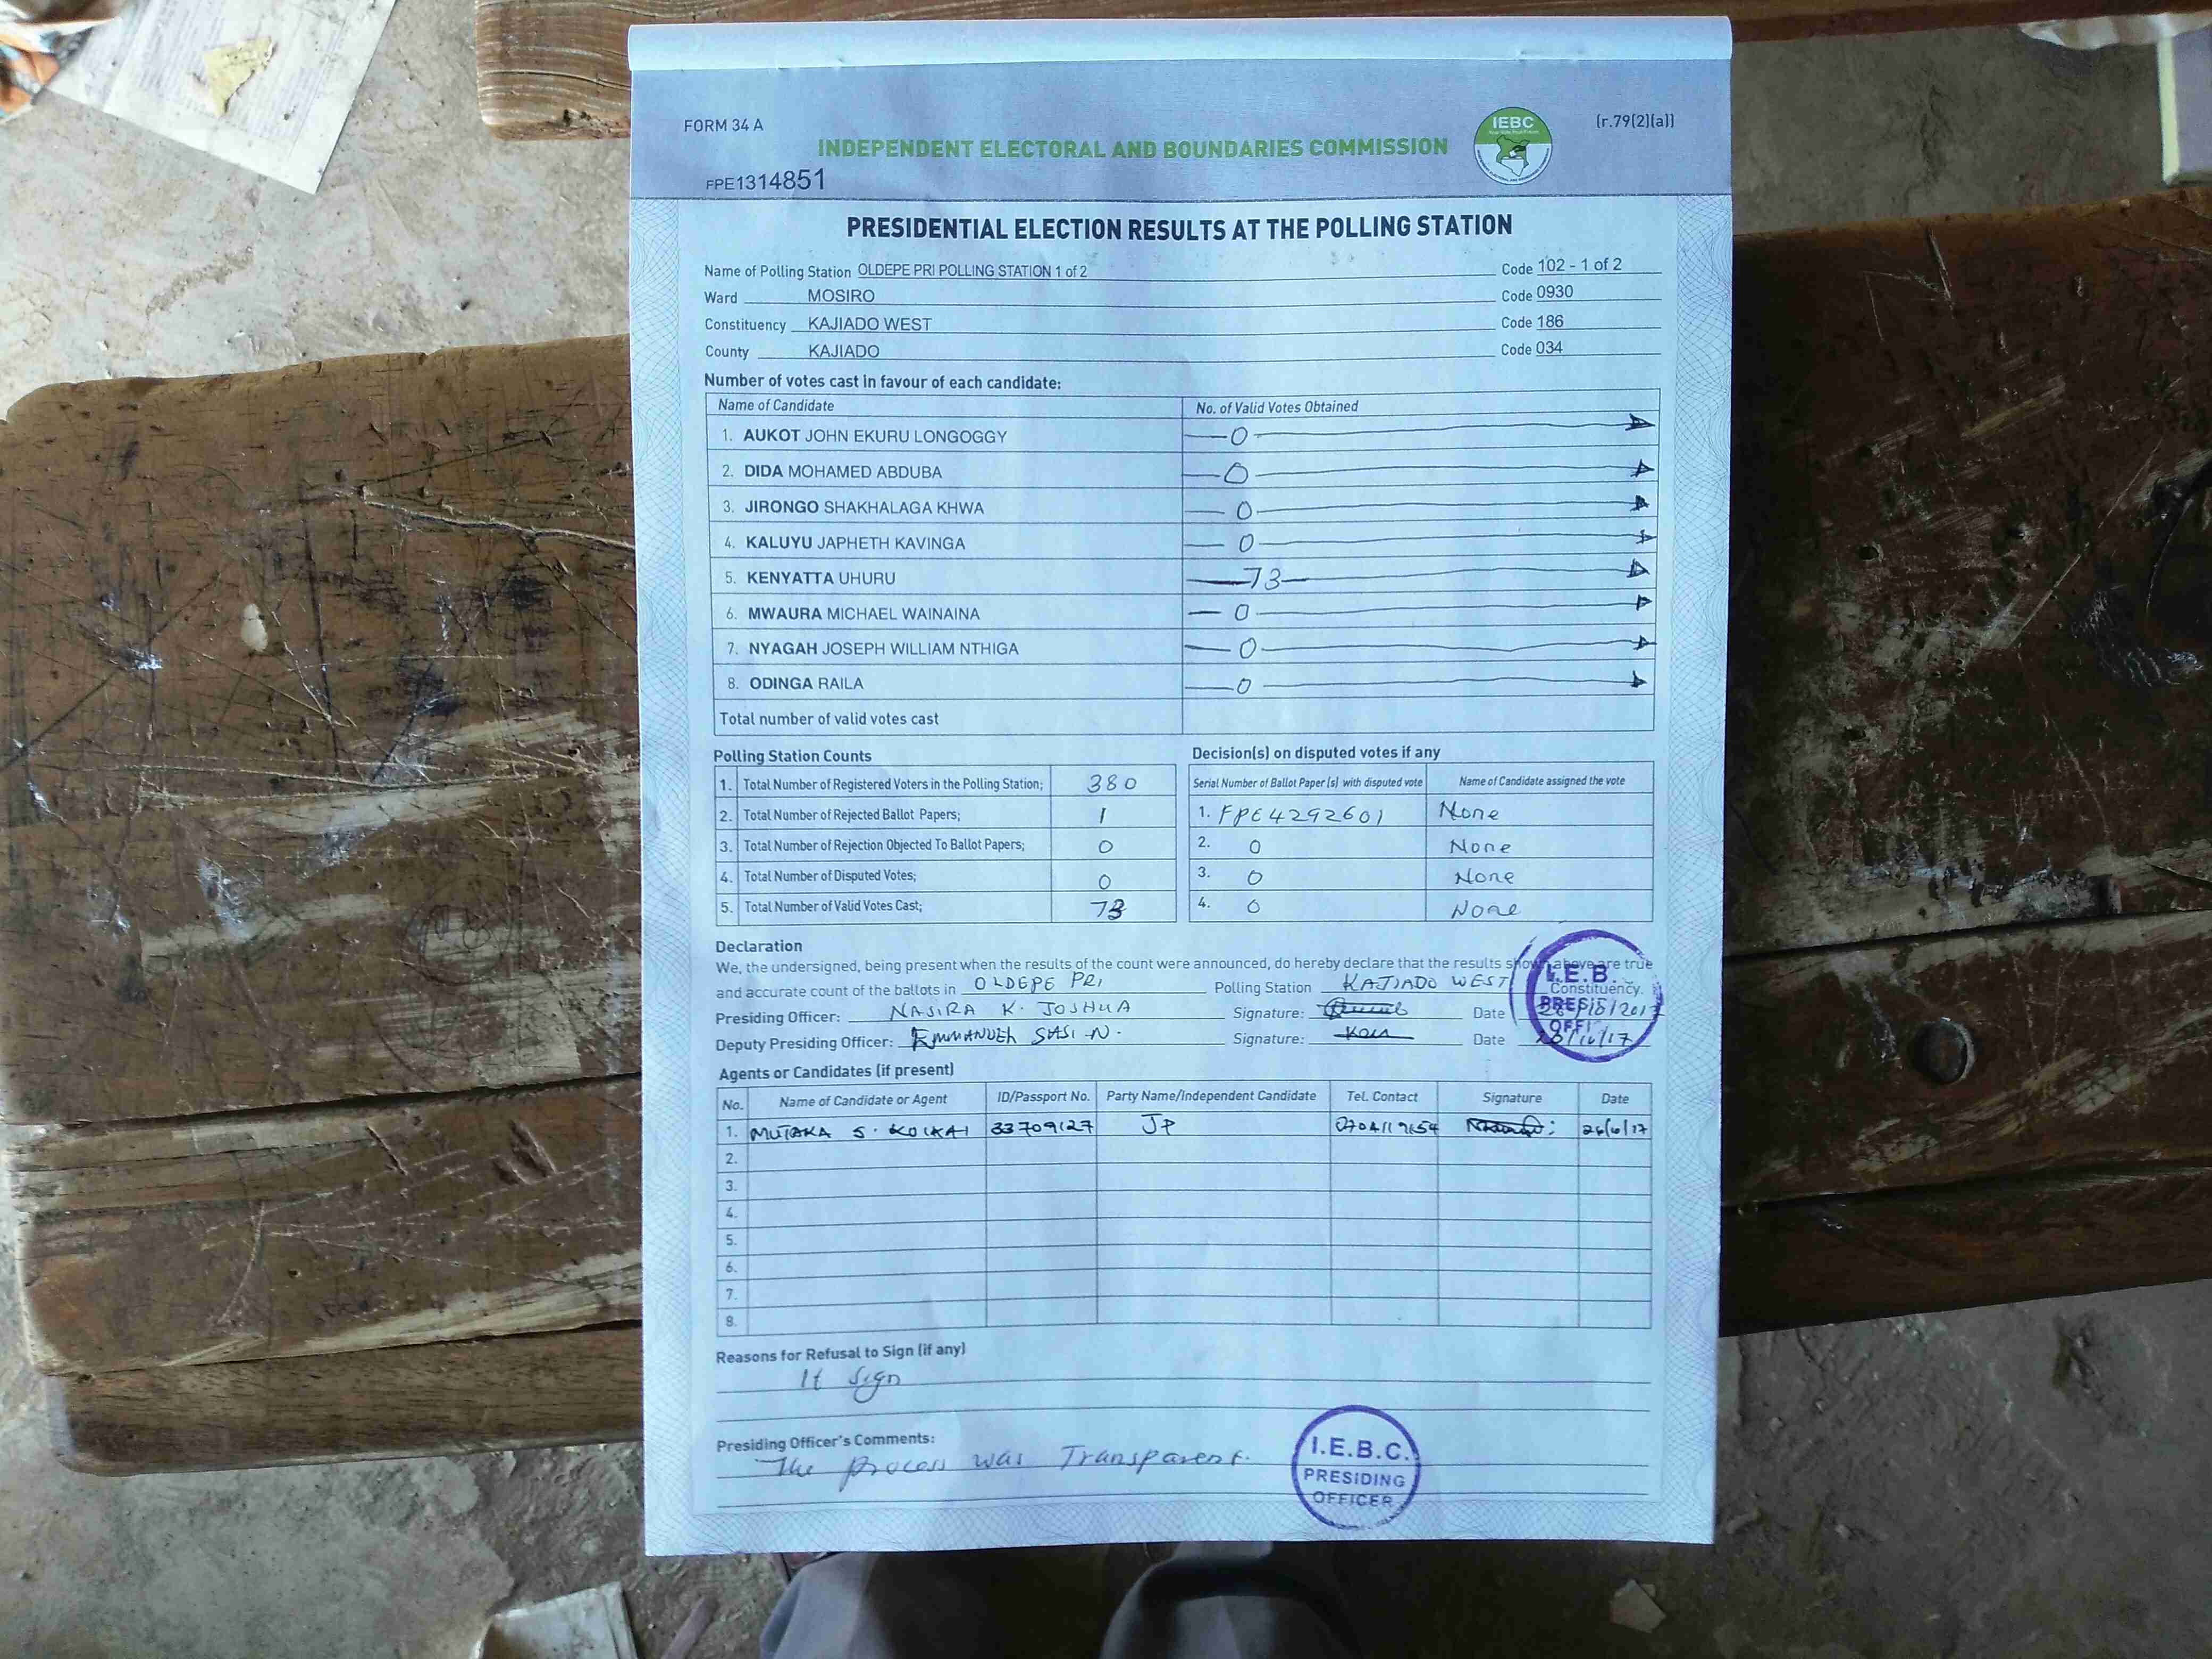 FORM 34 A
INDEPENDENT ELECTORAL AND BOUNDARIES COMMISSION
IEBC
(r.79(2)(a))
FPE1314851
PRESIDENTIAL ELECTION RESULTS AT THE POLLING STATION
Name of Polling Station OLDEPE PRI POLLING STATION 1 of 2 Code 102 - 1 of 2
Ward MOSIRO Code 0930
Constituency KAJIADO WEST Code 186
County KAJIADO Code 034
Number of votes cast in favour of each candidate:
Name of Candidate No. of Valid Votes Obtained
1. AUKOT JOHN EKURU LONGOGGY 0
2. DIDA MOHAMED ABDUBA 0
3. JIRONGO SHAKHALAGA KHWA 0
4. KALUYU JAPHETH KAVINGA 0
5. KENYATTA UHURU 73
6. MWAURA MICHAEL WAINAINA 0
7. NYAGAH JOSEPH WILLIAM NTHIGA 0
8. ODINGA RAILA 0
Total number of valid votes cast
Polling Station Counts
1. Total Number of Registered Voters in the Polling Station; 380
2. Total Number of Rejected Ballot Papers; 1
3. Total Number of Rejection Objected To Ballot Papers; 0
4. Total Number of Disputed Votes; 0
5. Total Number of Valid Votes Cast; 73
Decision(s) on disputed votes if any
Serial Number of Ballot Paper (s) with disputed vote Name of Candidate assigned the vote
1. FPE4292601 None
2. 0 None
3. 0 None
4. 0 None
Declaration
We, the undersigned, being present when the results of the count were announced, do hereby declare that the results shown above are true
and accurate count of the ballots in OLDEPE PRI Polling Station KAJIADO WEST Constituency.
Presiding Officer: NASIRA K. JOSHUA Signature: Date
Deputy Presiding Officer: EMMANUEL SASI N. Signature: Date
I.E.B.
PRESID
OFFI
Agents or Candidates (if present)
No. Name of Candidate or Agent ID/Passport No. Party Name/Independent Candidate Tel. Contact Signature Date
1. MUTAKA S. KOIKAI 33709127 JP
2.
3.
4.
5.
6.
7.
8.
Reasons for Refusal to Sign (if any)
It Sign
Presiding Officer's Comments:
The process was Transparent.
I.E.B.C.
PRESIDING
OFFICER